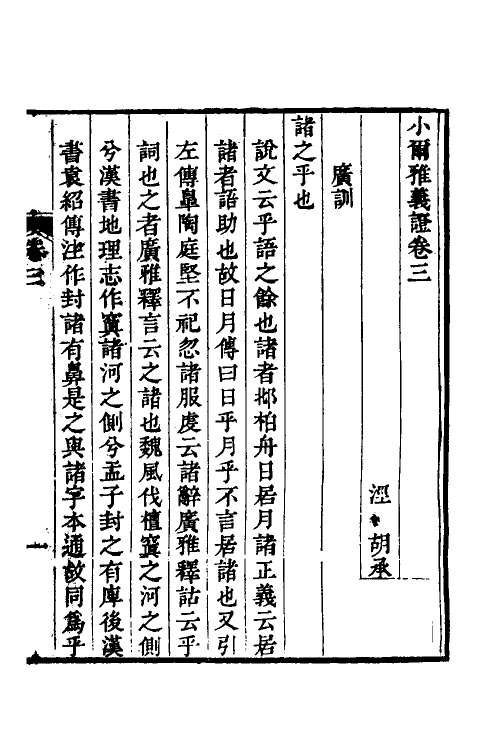 小爾雅義證卷三
涇 胡承
廣訓
諸之乎也
說文云乎語之餘也諸者邶柏舟日居月諸正義云居
諸者語助也故日月傳曰日乎月乎不言居諸也又引
左傳臯陶庭堅不祀忽諸服虔云諸辭廣雅釋詁云乎
詞也之者廣雅釋言云之諸也魏風伐檀寘之河之側
兮漢書地理志作寘諸河之側兮孟子封之有庳後漢
書袁紹傳注作封諸有鼻是之與諸字本通故同爲乎
卷三
一